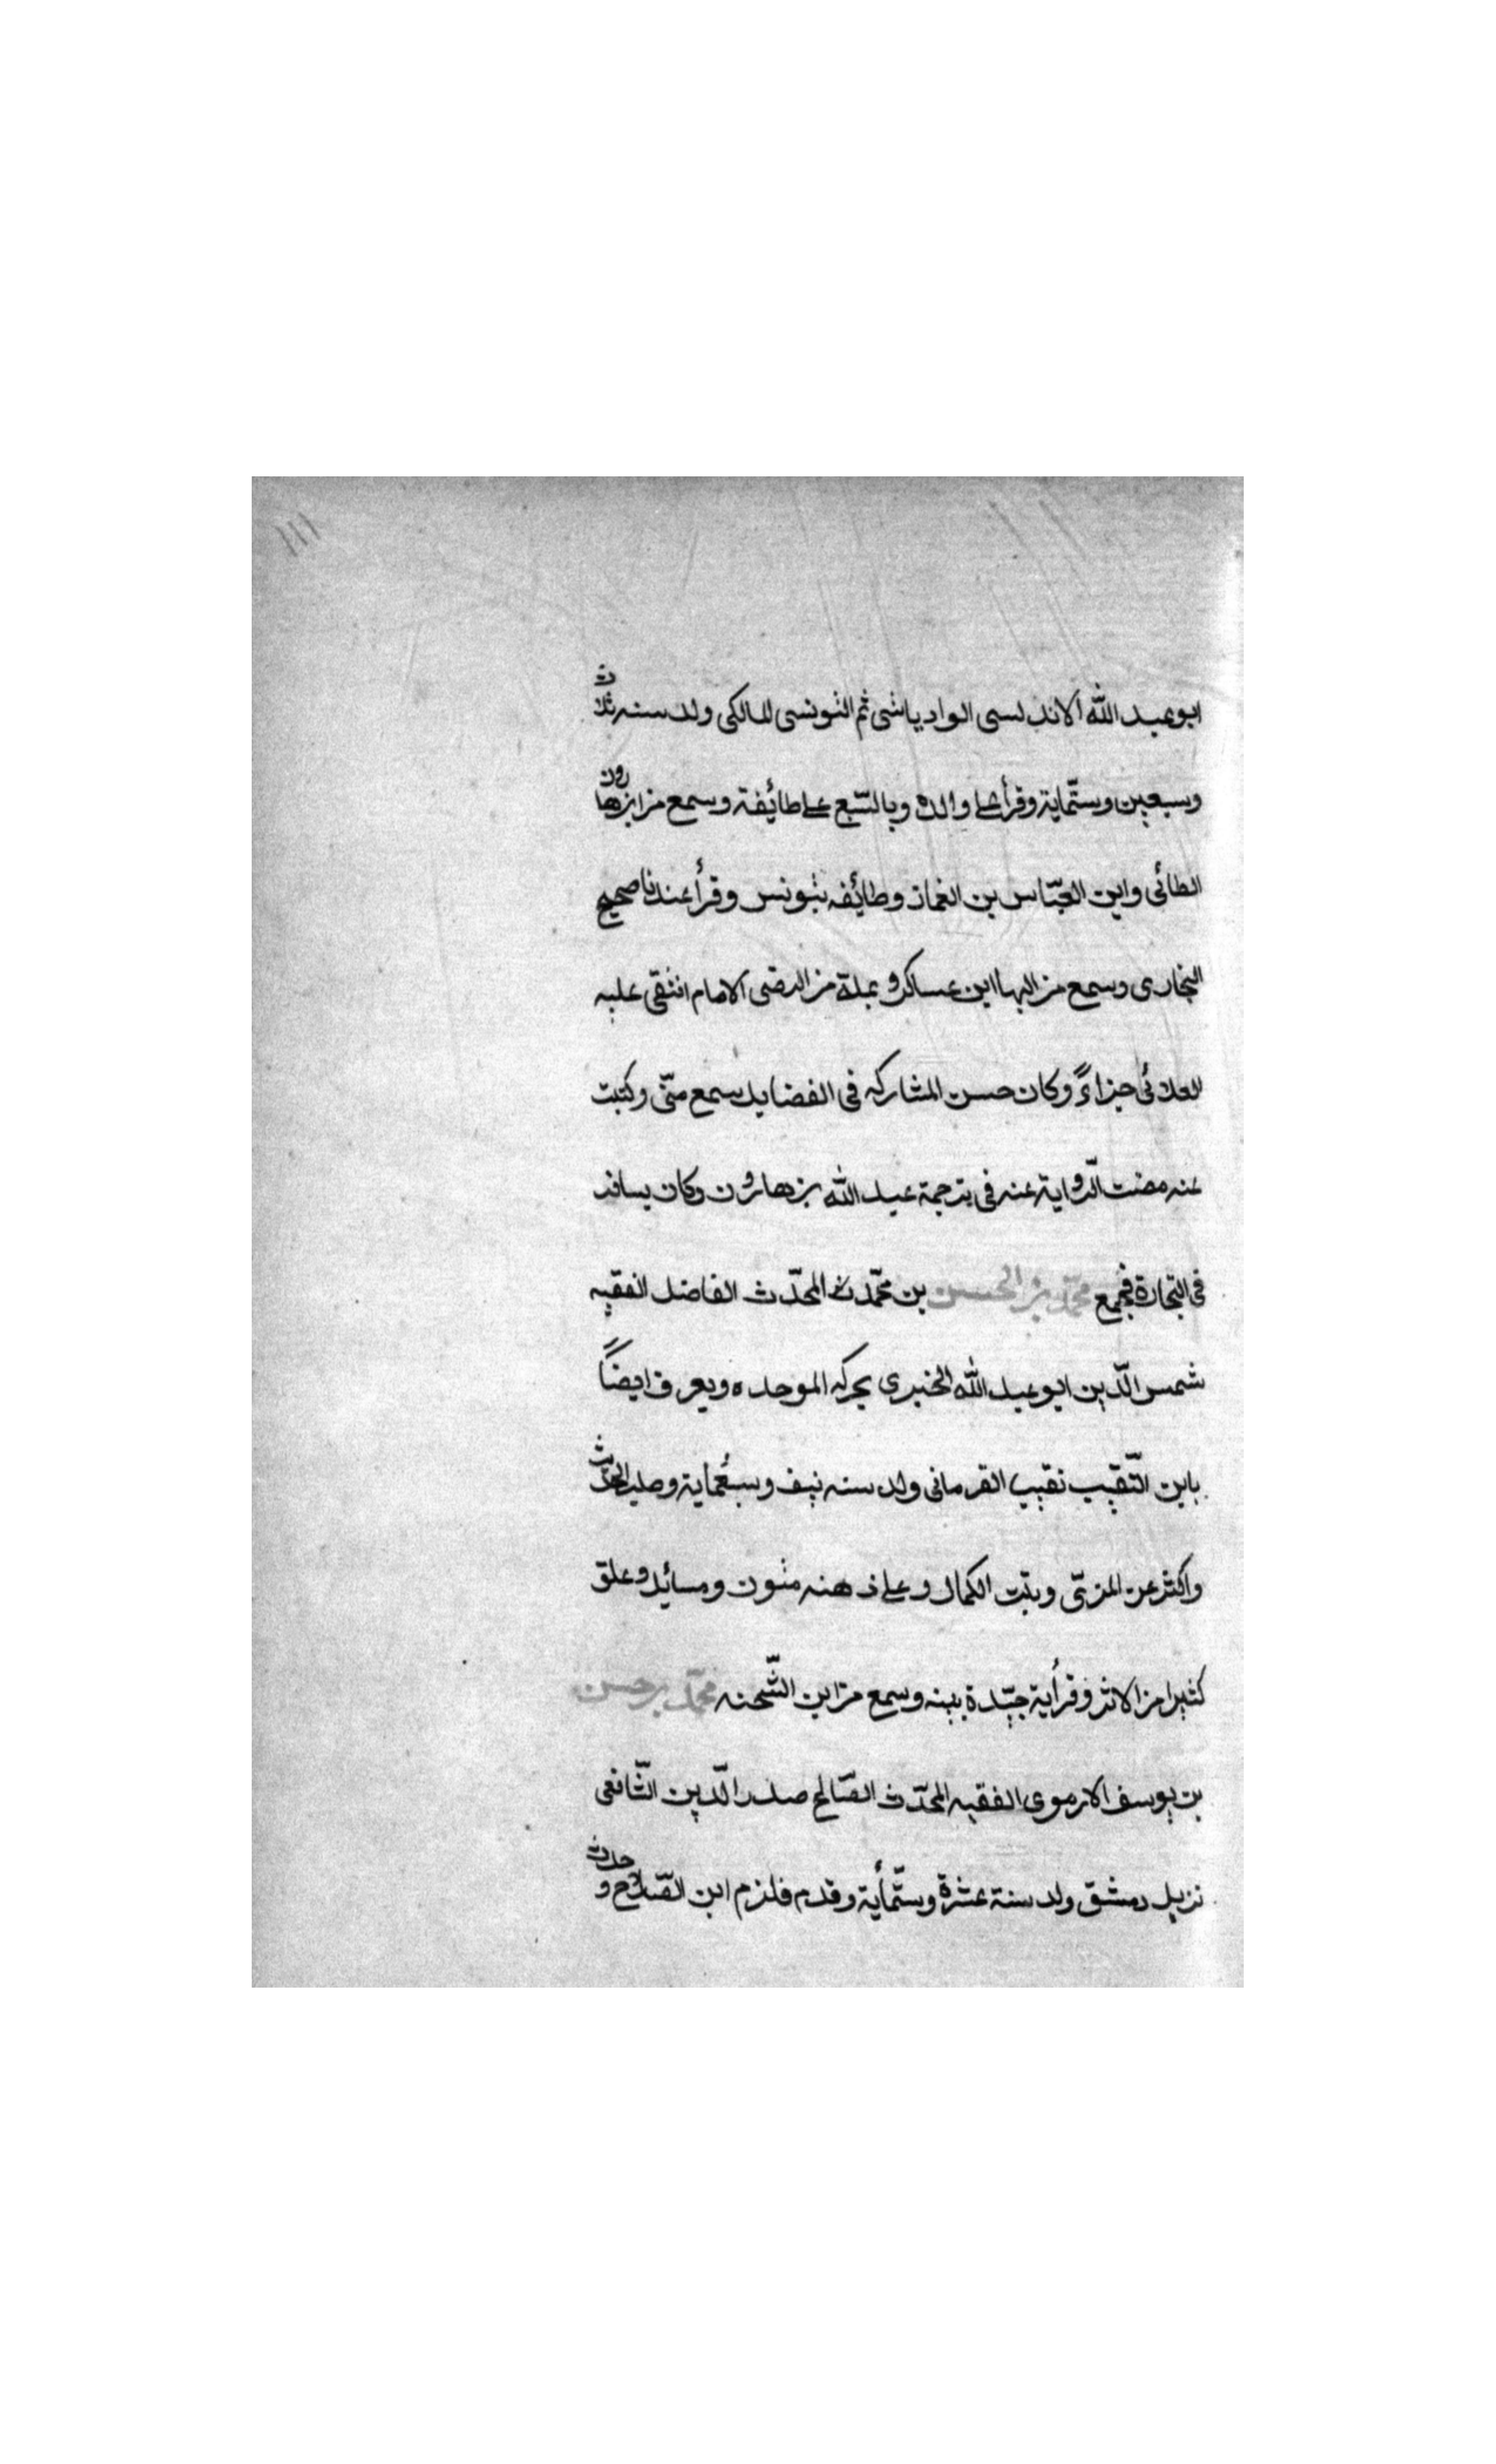 ١١١
ابو عبد الله الاندلسى الوادياشى ثم التونسى المالكى ولد سنه ثلاث
وسبعين وستّماية وقرأ على والده وبالسّبع على طائفة وسمع من ابن هارون
الطائى وابن العبّاس بن الغماز وطائفه بتونس وقرأ عندنا صحيح
البخارى وسمع من البها ابن عساكر و بمكة من الرضى الامام انتقى عليه
العلائى جزاءً وكان حسن المشاركه فى الفضايل سمع منّى وكتبت
عنه مضت الرّواية عنه فى ترجمة عبد الله بن هارون وكان يسافر
فى التجارة فجمع محمّد بن الحسن بن محمّد المحدّث الفاضل الفقيه
شمس الدّين ابو عبد الله الخبرى بحركه الموحده ويعرف ايضاً
بابن النّقيب نقيب القرمانى ولد سنه نيف وسبعماية وطلب الحديث
واكثر عن المزىّ وبنت الكمال وعلى ذهنه متون ومسائل وعلق
كثيرا من الاثر وقرأية جيّدة بينه وسمع من ابن الشّحنه محمّد بن حسن
بن يوسف الارموى الفقيه المحدّث الصّالح صدر الدّين الشّافعى
نزيل دمشق ولد سنة عشرة وستّمأية وقدم فلزم ابن الصّلاح و حدث